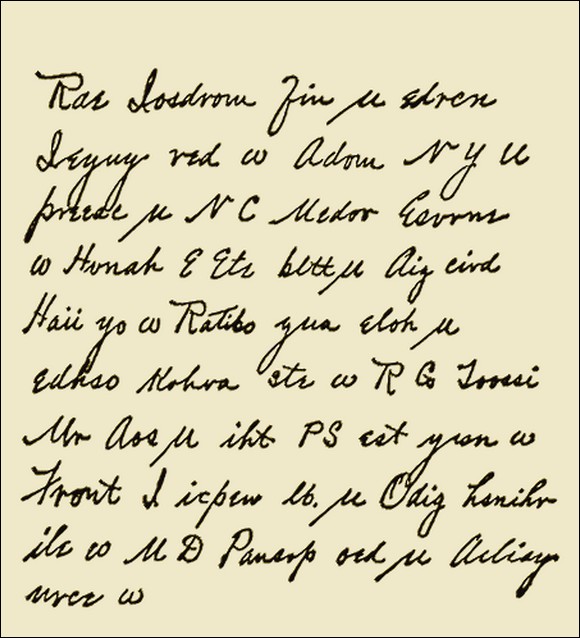 Rae Iosdrom Fin u edren
Ieyuy red w Adom N Y U
preese u N C Medor Esvrns
w Hvnah E Ete bltt u Aig eivd
Haii yo w Ratibo yua eloh u
edhso Kohva ste w R G Toossi
Mr Aos u iht PS est yusn w
Front I icpew lb. u Odig hsnihr
ile w M D Panerp oed u
urce w